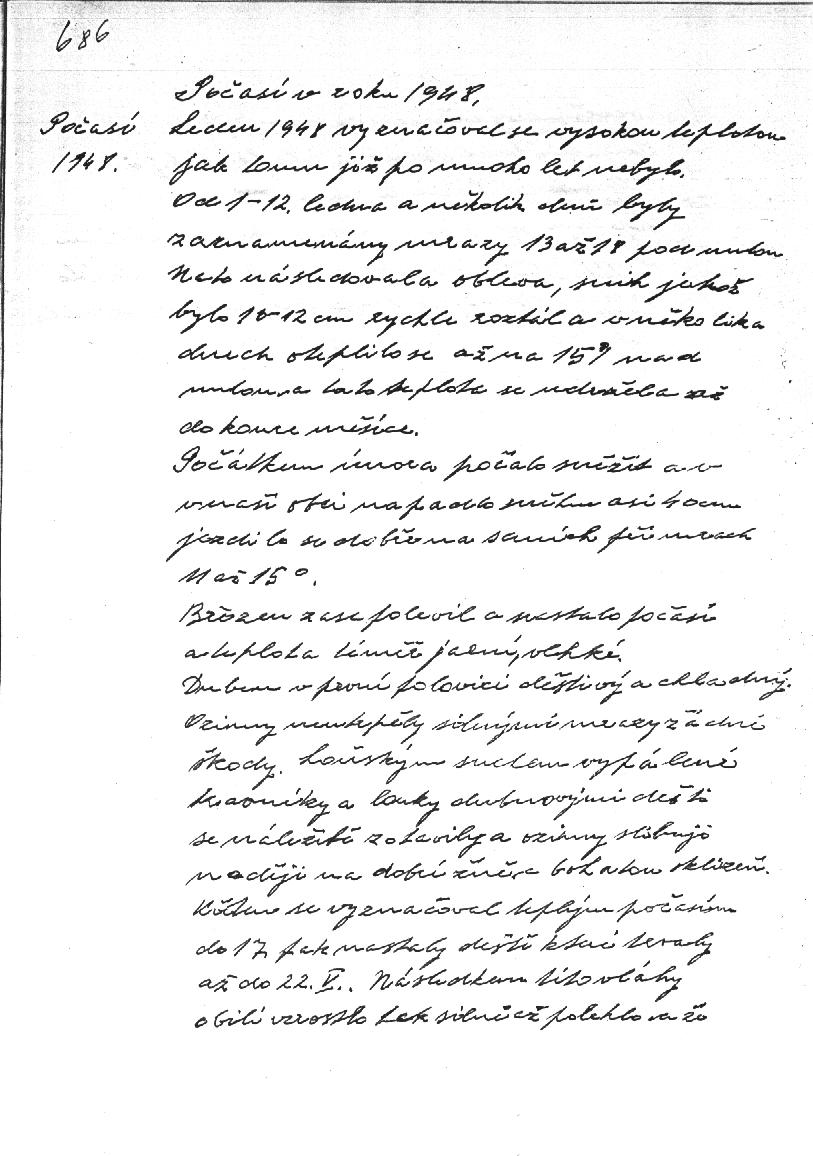 686
Počasí v roku 1948.
Počasí
1948.
Leden 1948 vyznačoval se vysokou teplotou
jak tomu již po mnoho let nebylo.
Od 1-12. ledna a několik dnů byly
zaznamenány mrazy 13 až 18 pod nulou
Nato následovala obleva, sníh jehož
bylo 10-12 cm rychle roztál a v několika
dnech oteplilo se až na 15° nad
nulou, a tato teplota se udržela až
do konce měsíce.
Počátkem února počalo sněžit a v
v naší obci napadlo sněhu asi 40 cm
jezdilo se dobře na saních při mrazech
11 až 15°.
Březen zase polevil a nastalo počasí
a teplota téměř jarní, vlhké.
Duben v první polovici deštivý a chladný.
Oziminy neutrpěly silnými mrazy žádné
škody. Loňským suchem vypálené
travníky a louky dubnovými dešti
se náležitě zotavily a ozimy slibují
naději na dobré žně a bohatou sklizeň.
Květen se vyznačoval teplým počasím
do 17. pak nastaly deště které trvaly
až do 22. V.. Následkem této vláhy
obilí vzrostlo tak silně až polehlo a že